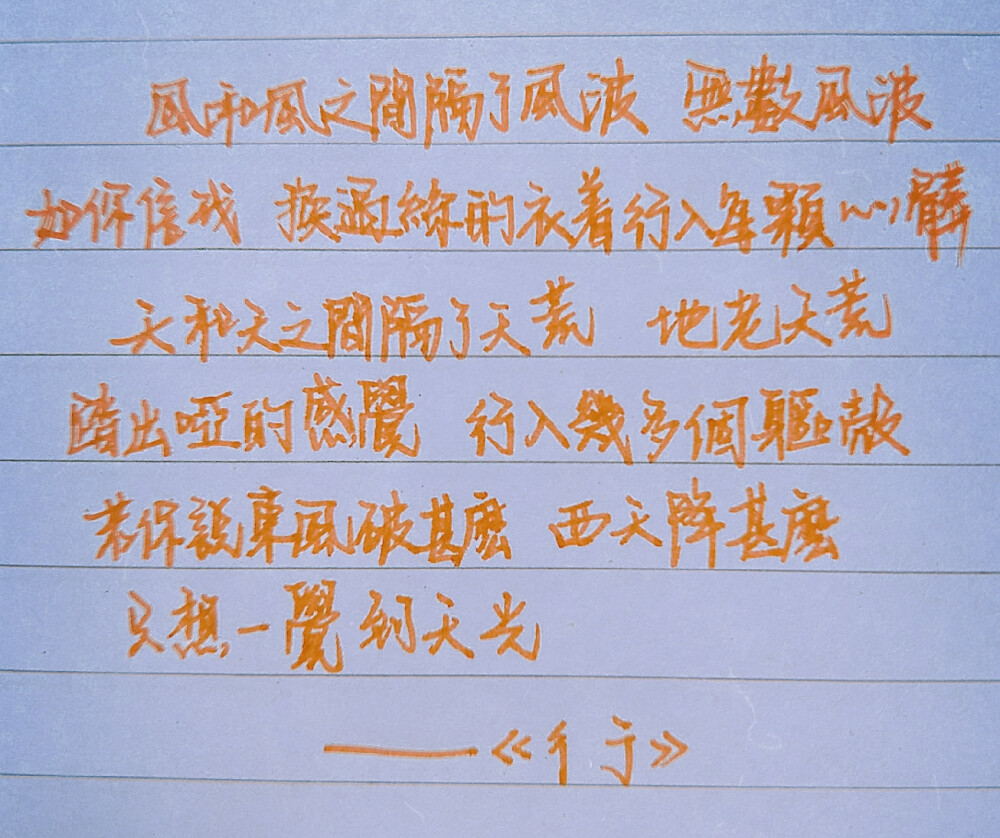 風和風之間隔了風波 無數風波
如你信我 換過綠的衣着行入每顆心臟
天和天之間隔了天荒 地老天荒
踏出啞的感覺 行入幾多個軀殼
若你說東風破甚麼 西天降甚麼
只想一覺到天光
——《彳亍》